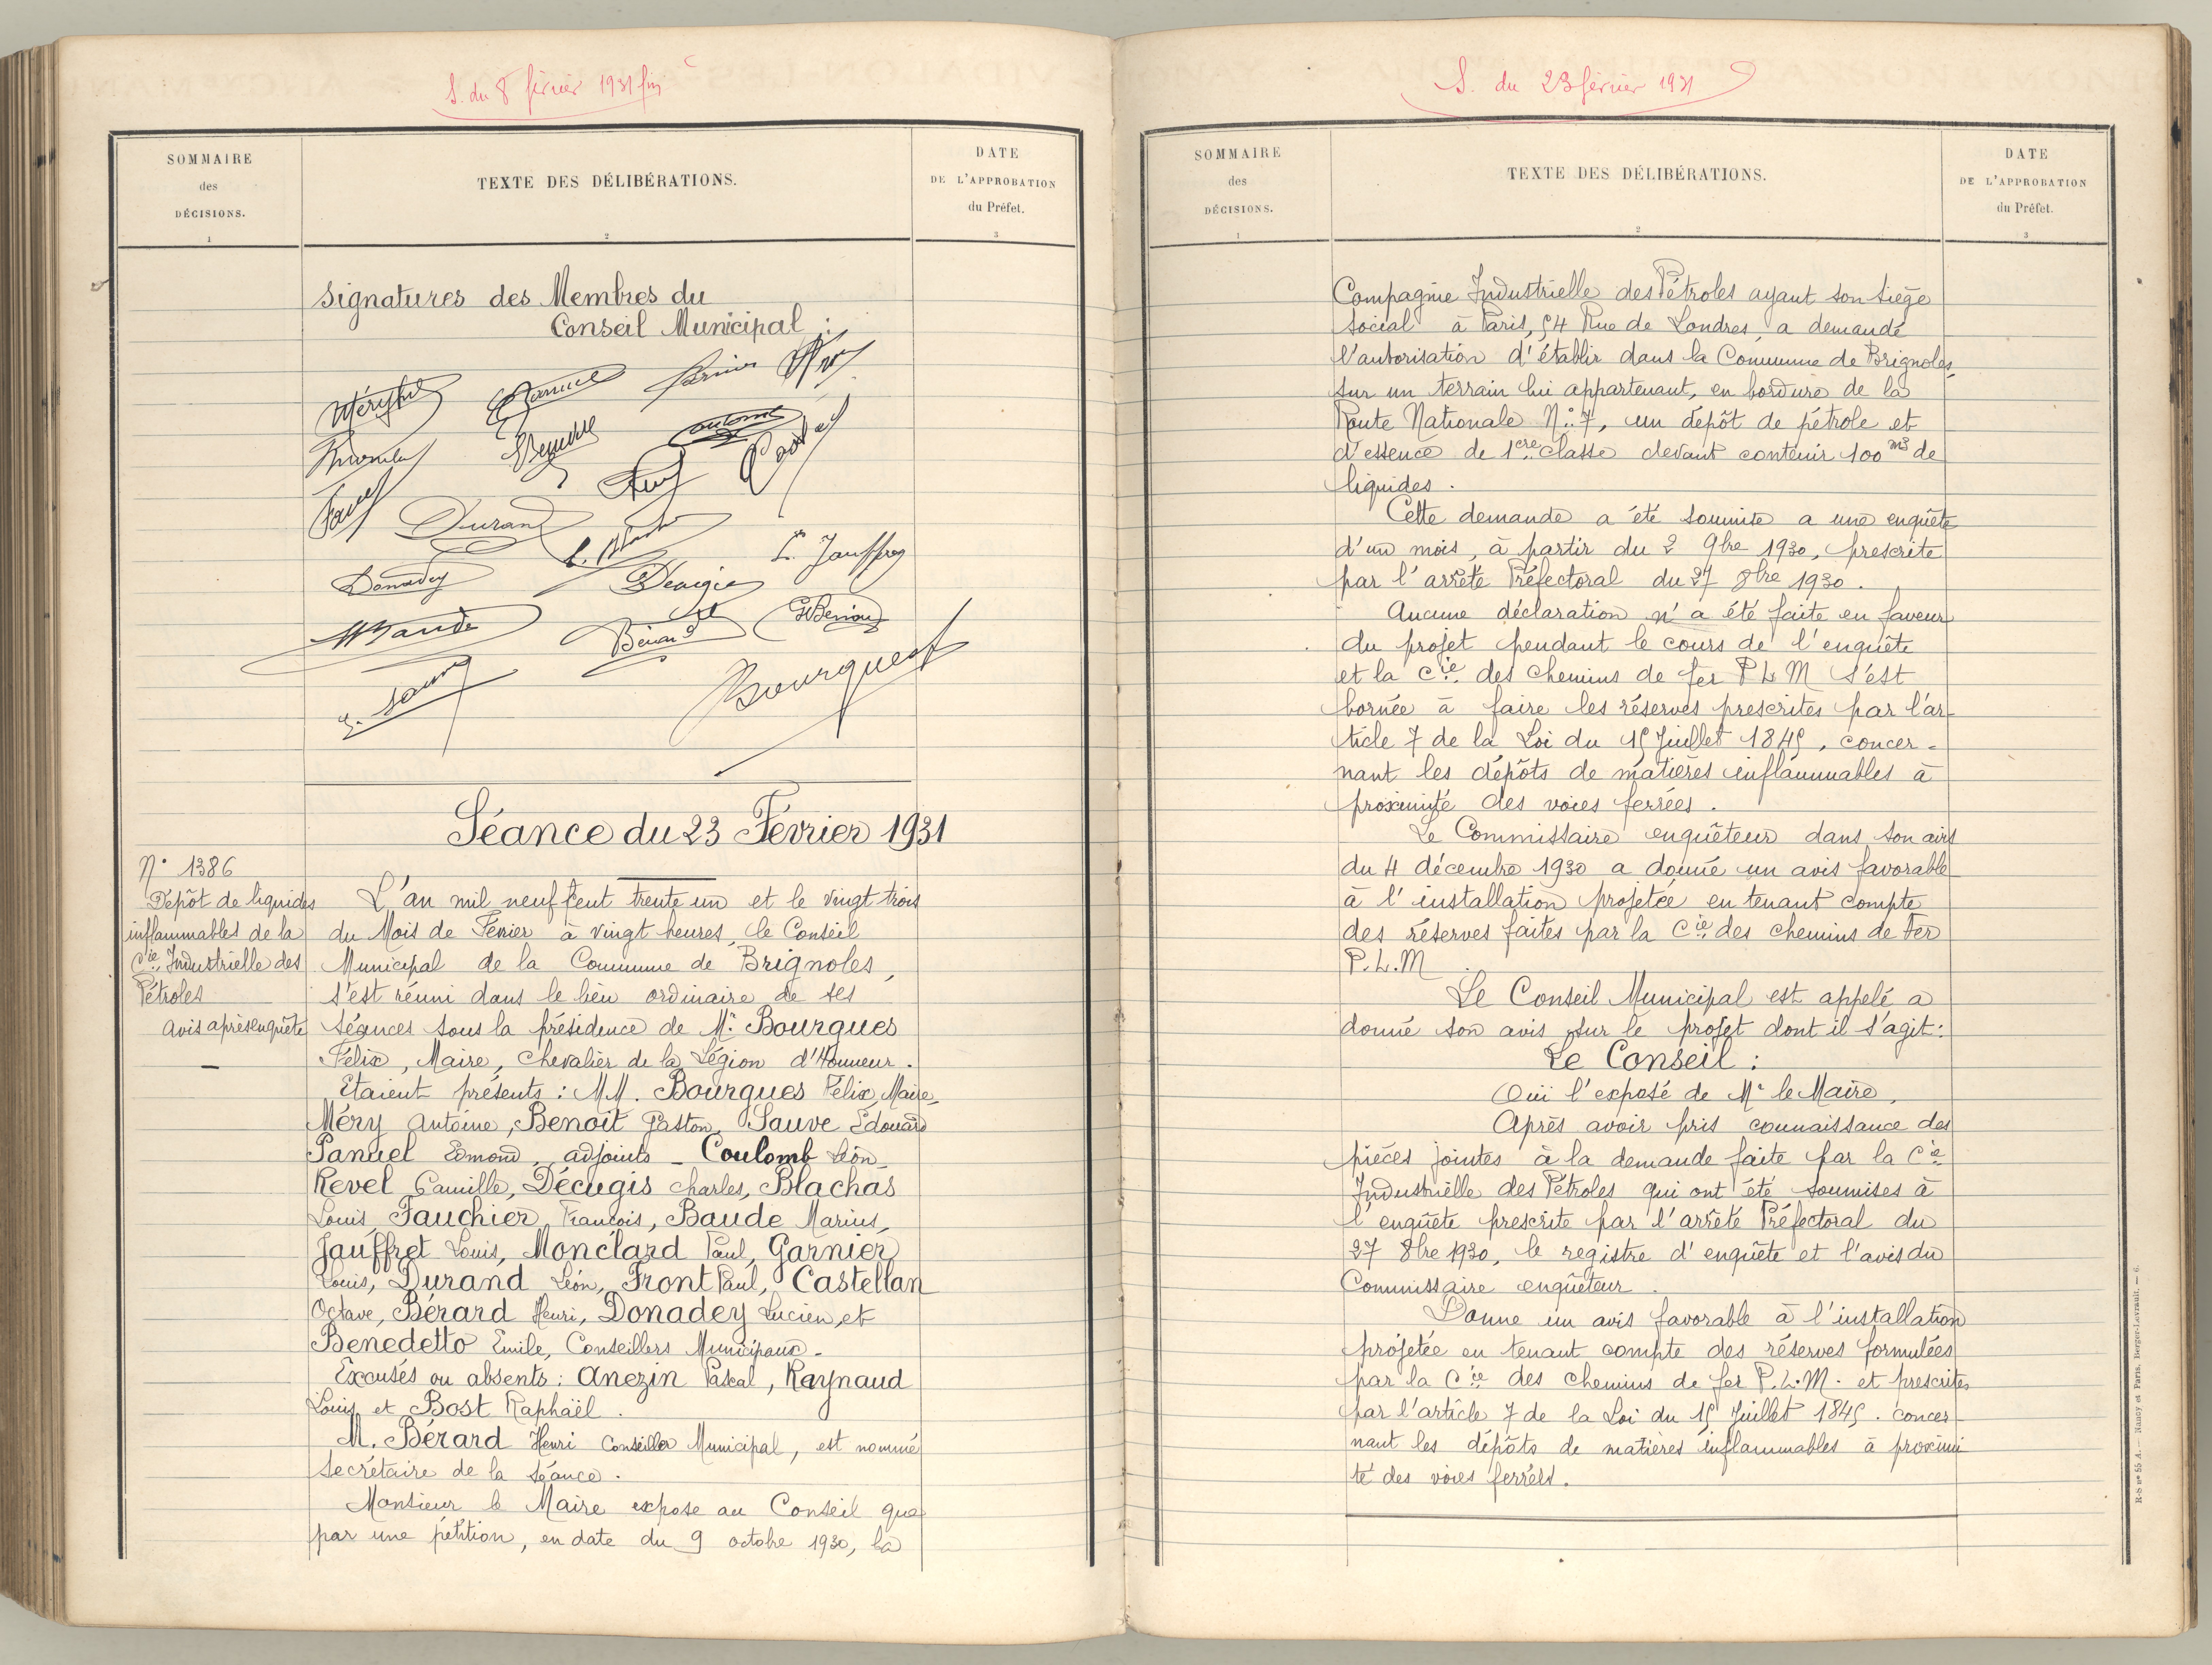 S. du 8 février 1931 fin
SOMMAIRE
des
DÉCISIONS.
1
TEXTE DES DÉLIBÉRATIONS.
2
DATE
DE L'APPROBATION
du Préfet.
3
Signatures des Membres du
Conseil Municipal :
Durand
L. Jauffret
Donadey
Décugis
Baude
Bérard
Bourgues
Séance du 23 Février 1931
N° 1386
Dépôt de liquides
inflammables de la
Cie Industrielle des
Pétroles
avis après enquête
L'an mil neuf cent trente un et le vingt trois
du Mois de Février à vingt heures, le Conseil
Municipal de la Commune de Brignoles,
s'est réuni dans le lieu ordinaire de ses
séances sous la présidence de Mr Bourgues
Félix, Maire, Chevalier de la Légion d'Honneur.
Etaient présents : MM. Bourgues Félix, Maire,
Méry Antoine, Benoit Gaston, Sauve Edouard
Panuel Edmond, adjoints - Coulomb Léon -
Revel Camille, Décugis Charles, Blachas
Louis, Fauchier François, Baude Marius,
Jauffret Louis, Monclard Paul, Garnier
Louis, Durand Léon, Front Paul, Castellan
Octave, Bérard Henri, Donadey Lucien, et
Benedetto Emile, Conseillers Municipaux -
Excusés ou absents : Anezin Pascal, Raynaud
Louis et Bost Raphaël.
M. Bérard Henri Conseiller Municipal, est nommé
secrétaire de la séance.
Monsieur le Maire expose au Conseil que
par une pétition, en date du 9 octobre 1930, la
S. du 23 février 1931
SOMMAIRE
des
DÉCISIONS.
1
TEXTE DES DÉLIBÉRATIONS.
2
DATE
DE L'APPROBATION
du Préfet.
3
Compagnie Industrielle des Pétroles ayant son siège
social à Paris, 54 Rue de Londres, a demandé
l'autorisation d'établir dans la Commune de Brignoles,
sur un terrain lui appartenant, en bordure de la
Route Nationale N° 7, un dépôt de pétrole et
d'essence de 1ere classe devant contenir 100 m3 de
liquides.
Cette demande a été soumise a une enquête
d'un mois, à partir du 2 9bre 1930, prescrite
par l'arrêté Préfectoral du 27 8bre 1930.
Aucune déclaration n'a été faite en faveur
du projet pendant le cours de l'enquête
et la Cie des chemins de fer P L M s'est
bornée à faire les réserves prescrites par l'ar-
ticle 7 de la Loi du 15 Juillet 1845, concer-
nant les dépôts de matières inflammables à
proximité des voies ferrées.
Le Commissaire enquêteur dans son avis
du 4 décembre 1930 a donné un avis favorable
à l'installation projetée en tenant compte
des réserves faites par la Cie des chemins de Fer
P.L.M.
Le Conseil Municipal est appelé a
donné son avis sur le projet dont il s'agit :
Le Conseil :
Ouï l'exposé de Mr le Maire,
Après avoir pris connaissance des
pièces jointes à la demande faite par la Cie
Industrielle des Pétroles qui ont été soumises à
l'enquête prescrite par l'arrêté Préfectoral du
27 8bre 1930, le registre d'enquête et l'avis du
Commissaire enquêteur.
Donne un avis favorable à l'installation
projetée en tenant compte des réserves formulées
par la Cie des chemins de fer P.L.M. et prescrites
par l'article 7 de la Loi du 15 Juillet 1845. concer-
nant les dépôts de matières inflammables à proximi
té des voies ferrées.
R-S n° 55 A. — Nancy et Paris, Berger-Levrault. — 6.